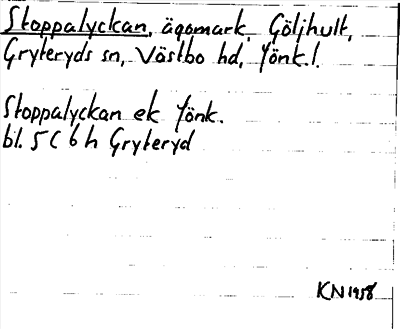 Stoppalyckan, ägomark, Göljhult,
Gryteryds sn, Västbo hd, Jönk.l.
Stoppalyckan ek Jönk.
bl. 5C6h Gryteryd
KN 1958